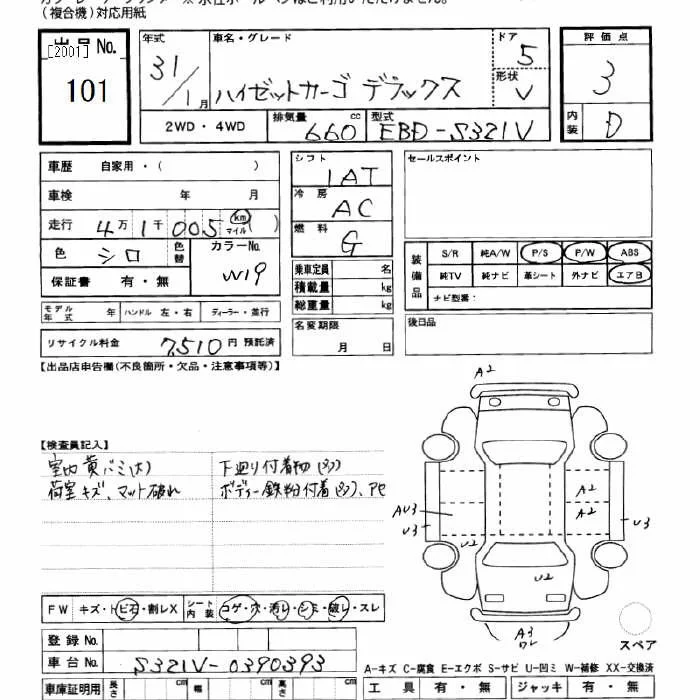 (複合機)対応用紙
出品No.
[2001]
101
年式
31/1月
車名・グレード
ハイゼットカーゴ デラックス
ドア
5
形状
V
評価点
3
内装
D
2WD・4WD
排気量
660 cc
型式
EBD-S321V
車歴 自家用・( )
車検 年 月
走行 4万1千005 km マイル ( )
色 シロ 色替
カラーNo.
W19
保証書 有・無
シフト
IAT
冷房
AC
燃料
G
乗車定員 名
積載量 kg
総重量 kg
セールスポイント
装備品
S/R 純A/W P/S P/W ABS
純TV 純ナビ 革シート 外ナビ エアB
ナビ型番:
モデル年式 年 ハンドル 左・右 ディーラー・並行
リサイクル料金 7,510 円 預託済
名変期限
月 日
後日品
【出品店申告欄(不良箇所・欠品・注意事項等)】
【検査員記入】
室内黄バミ(大) 下廻り付着物(多)
荷室キズ、マット破れ ボディー鉄粉付着(多)、アセ
A2
A2
A2
AU3
U3
U2
U3
U2
A3
スペア
FW キズ・トビ石・割レX シート内装 コゲ・穴・汚レ・シミ・破レ・スレ
登録No.
車台No. S321V-0390393
車庫証明用 長さ cm 幅 cm 高さ cm
A-キズ C-腐食 E-エクボ S-サビ U-凹ミ W-補修 XX-交換済
工具 有・無 ジャッキ 有・無